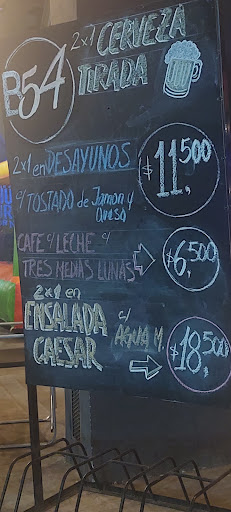 B54
2x1 CERVEZA
TIRADA
2x1 en DESAYUNOS
c/TOSTADO de Jamon y
Queso
$11,500
CAFE c/LECHE c/
TRES MEDIAS LUNAS
$6,500
2x1 en
ENSALADA
CAESAR
c/
AGUA M.
$18,500